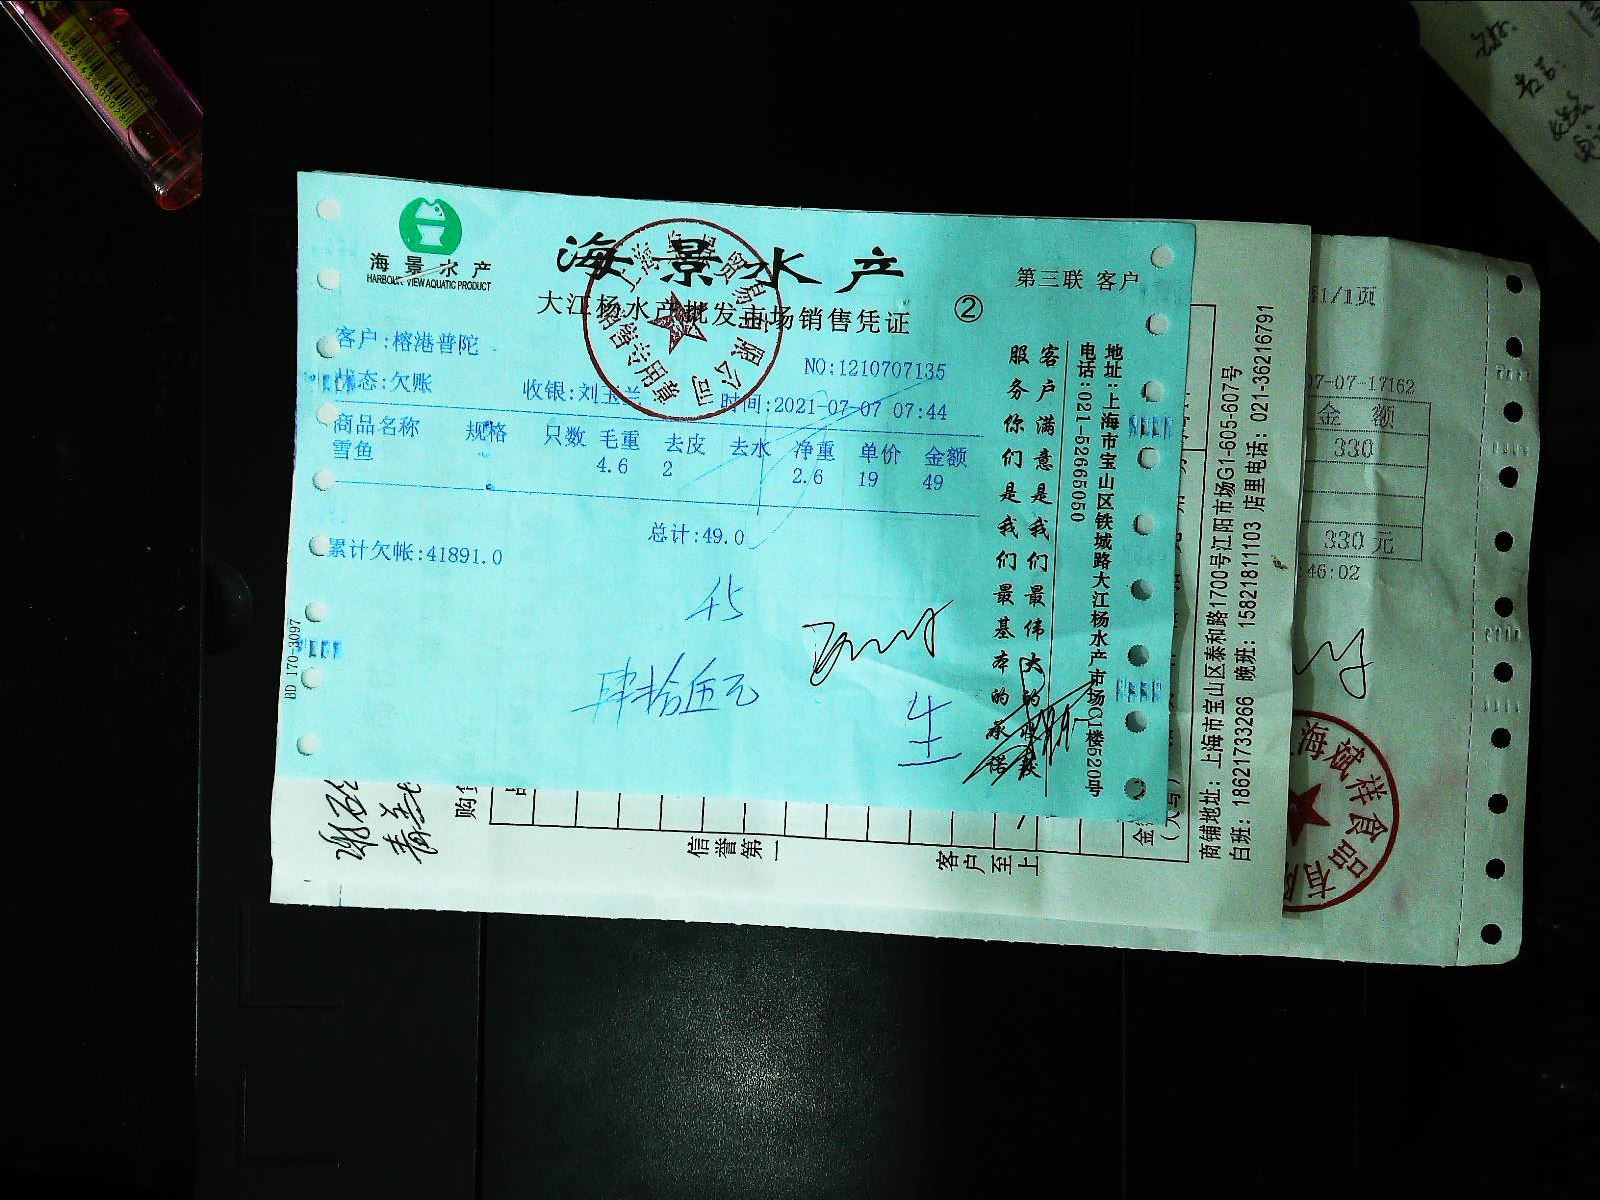 海景水产
HARBOUR VIEW AQUATIC PRODUCT
海景水产
大江杨水产批发市场销售凭证
②
第三联 客户
客户:榕港普陀
NO:1210707135
状态:欠账
收银:刘玉兰
时间:2021-07-07 07:44
商品名称 规格 只数 毛重 去皮 去水 净重 单价 金额
雪鱼 4.6 2 2.6 19 49
总计:49.0
累计欠帐:41891.0
45
肆拾伍元
生
BD 170-3097
客户满意是我们最伟大的
服务你们是我们最基本的承诺
地址:上海市宝山区铁城路大江杨水产市场G1楼5520号
电话:021-52665050
购
信誉第一
客户至上
商铺地址:上海市宝山区泰和路1700号江阳市场G1-605-607号
白班:18621733266 晚班:15821811103 店里电话:021-36216791
1/1页
07-07-17162
金 额
330
330 元
46:02
海斌祥食品有